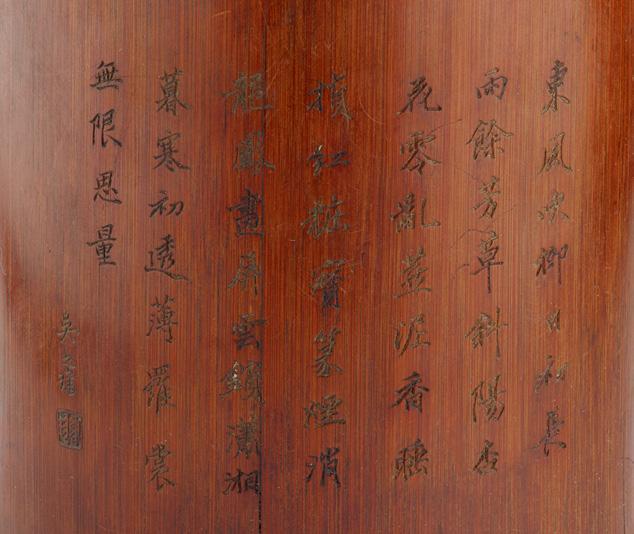 東風吹柳日初長
雨餘芳草斜陽杏
花零亂燕泥香睡
損紅粧寶篆煙消
龍鳳畫屏雲鎖瀟湘
暮寒初透薄羅裳
無限思量
吳之璠